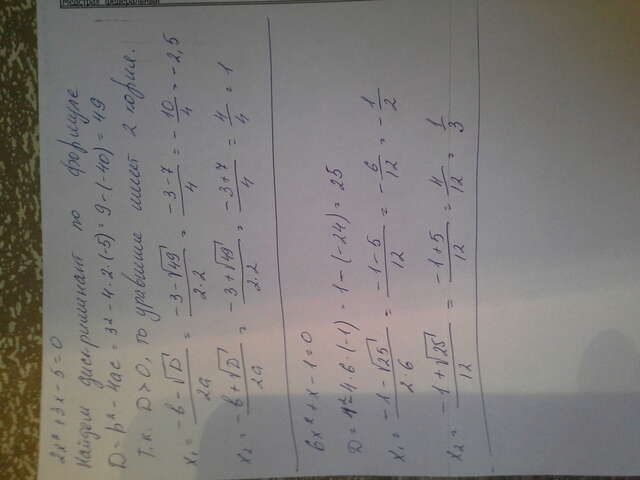 2x² + 3x - 5 = 0
Найдем дискриминант по формуле
D = b² - 4ac = 3² - 4 · 2 · (-5) = 9 - (-40) = 49
Т.к. D > 0, то уравнение имеет 2 корня.
x₁ = (-b - √D)/2a = (-3 - √49)/2·2 = (-3 - 7)/4 = - 10/4 = -2,5
x₂ = (-b + √D)/2a = (-3 + √49)/2·2 = (-3 + 7)/4 = 4/4 = 1
6x² + x - 1 = 0
D = 1² - 4 · 6 · (-1) = 1 - (-24) = 25
x₁ = (-1 - √25)/2·6 = (-1 - 5)/12 = - 6/12 = - 1/2
x₂ = (-1 + √25)/12 = (-1 + 5)/12 = 4/12 = 1/3